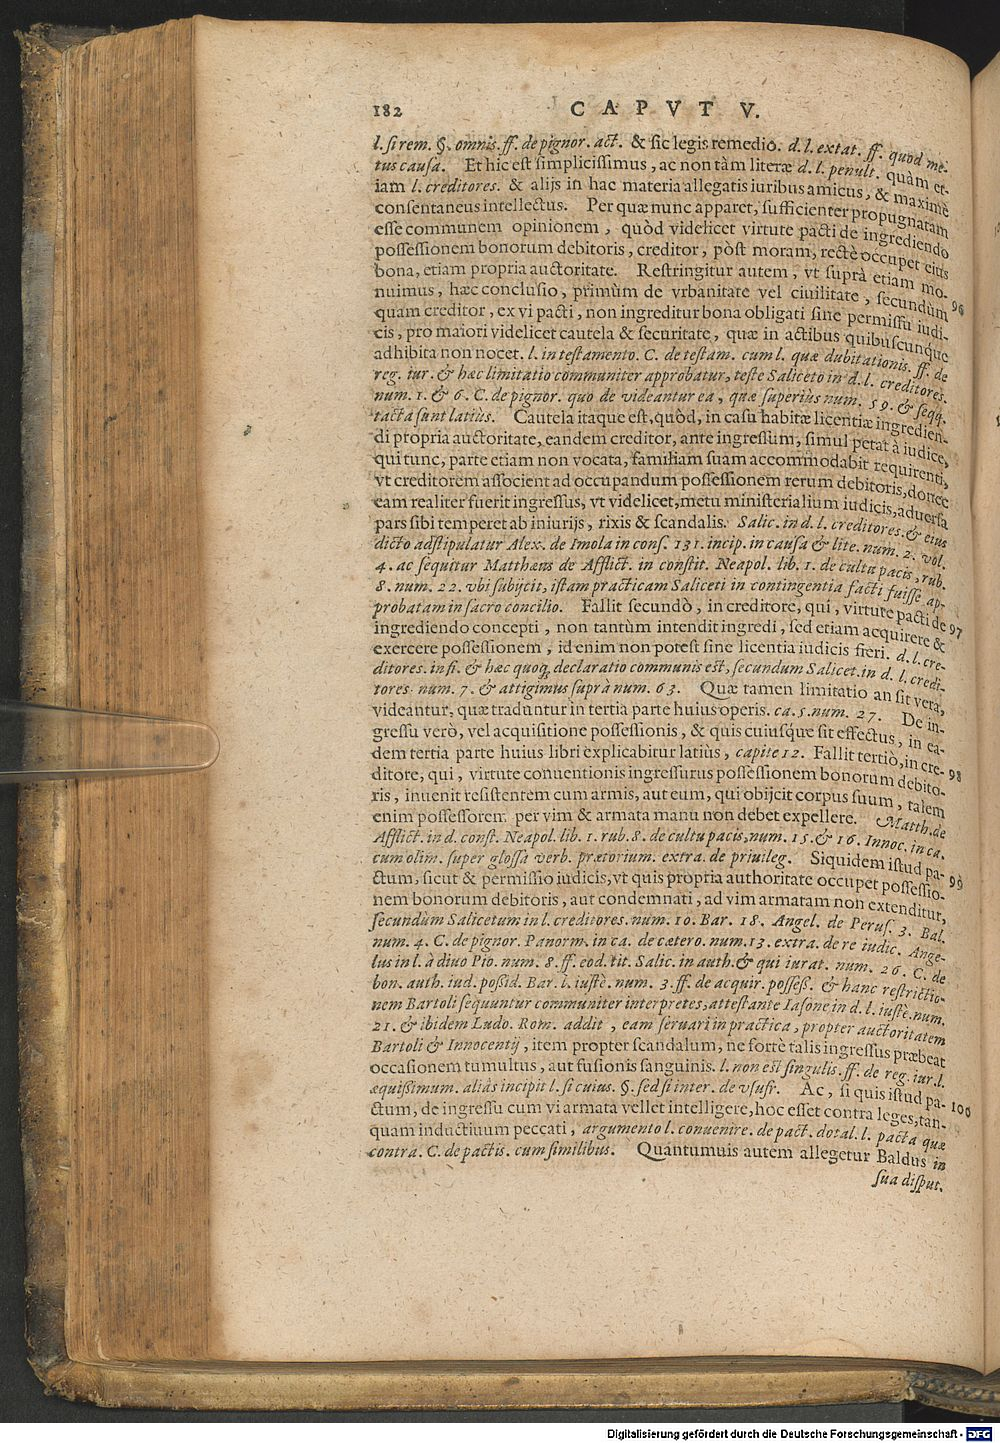 182 CAPVT V.
l. si rem. §. omnis. ff. de pignor. act. & sic legis remediō. d. l. extat. ff. quod me-
tus causa. Et hic est simplicissimus, ac non tàm literæ d. l. penult. quàm et-
iam l. creditores. & alijs in hac materia allegatis iuribus amicus, & maximè
consentaneus intellectus. Per quæ nunc apparet, sufficienter propugnatam
esse communem opinionem, quòd videlicet virtute pacti de ingrediendo
possessionem bonorum debitoris, creditor, pòst moram, rectè occupet eius
bona, etiam propria auctoritate. Restringitur autem, vt suprà etiam mo-
nuimus, hæc conclusio, primùm de vrbanitate vel ciuilitate, secundùm 96
quam creditor, ex vi pacti, non ingreditur bona obligati sine permissu iudi-
cis, pro maiori videlicet cautela & securitate, quæ in actibus quibuscunque
adhibita non nocet. l. in testamento. C. de testam. cum l. quæ dubitationis. ff. de
reg. iur. & hæc limitatio communiter approbatur, teste Saliceto in d. l. creditores.
num. 1. & 6. C. de pignor. quo de videantur ea, quæ superiùs num. 59. & seqq.
tacta sunt latiùs. Cautela itaque est, quòd, in casu habitæ licentiæ ingredien-
di propria auctoritate, eandem creditor, ante ingressum, simul petat à iudice,
qui tunc, parte etiam non vocata, familiam suam accommodabit requirenti,
vt creditorem associent ad occupandum possessionem rerum debitoris, donec
eam realiter fuerit ingressus, vt videlicet, metu ministerialium iudicis, aduersa
pars sibi temperet ab iniurijs, rixis & scandalis. Salic. in d. l. creditores. & eius
dicto adstipulatur Alex. de Imola in cons. 131. incip. in causa & lite. num. 2. vol.
4. ac sequitur Matthæus de Afflict. in constit. Neapol. lib. 1. de cultu pacis, rub.
8. num. 22. vbi subijcit, istam practicam Saliceti in contingentia facti fuisse ap-
probatam in sacro concilio. Fallit secundò, in creditore, qui, virtute pacti de 97
ingrediendo concepti, non tantùm intendit ingredi, sed etiam acquirere &
exercere possessionem, id enim non potest sine licentia iudicis fieri. d. l. cre-
ditores. in fi. & hæc quoq, declaratio communis est, secundum Salicet. in d. l. credi-
tores. num. 7. & attigimus suprà num. 63. Quæ tamen limitatio an sit vera,
videantur, quæ traduntur in tertia parte huius operis. ca. 5. num. 27. De in-
gressu verò, vel acquisitione possessionis, & quis cuiusque sit effectus, in ea-
dem tertia parte huius libri explicabitur latiùs, capite 12. Fallit tertiò, in cre-
ditore, qui, virtute conuentionis ingressurus possessionem bonorum debito- 98
ris, inuenit resistentem cum armis, aut eum, qui obijcit corpus suum, talem
enim possessorem per vim & armata manu non debet expellere. Matth. de
Afflict. in d. const. Neapol. lib. 1. rub. 8. de cultu pacis, num. 15. & 16. Innoc. in ca.
cum olim. super glossa verb. prætorium. extra. de priuileg. Siquidem istud pa-
ctum, sicut & permissio iudicis, vt quis propria authoritate occupet possessio- 99
nem bonorum debitoris, aut condemnati, ad vim armatam non extenditur,
secundùm Salicetum in l. creditores. num. 10. Bar. 18. Angel. de Perus. 3. Bal.
num. 4. C. de pignor. Panorm. in ca. de cætero. num. 13. extra. de re iudic. Ange-
lus in l. à diuo Pio. num. 8. ff. eod. tit. Salic. in auth. & qui iurat. num. 26. C. de
bon. auth. iud. possid. Bar. l. iustè. num. 3. ff. de acquir. posseß. & hanc restrictio-
nem Bartoli sequuntur communiter interpretes, attestante Iasone in d. l. iustè. num.
21. & ibidem Ludo. Rom. addit, eam seruari in practica, propter auctoritatem
Bartoli & Innocentij, item propter scandalum, ne fortè talis ingressus præbeat
occasionem tumultus, aut fusionis sanguinis. l. non est singulis. ff. de reg. iur. l.
æquissimum. aliàs incipit l. si cuius. §. sed si inter. de vsufr. Ac, si quis istud pa- 100
ctum, de ingressu cum vi armata vellet intelligere, hoc esset contra leges, tan-
quam inductiuum peccati, argumento l. conuenire. de pact. dotal. l. pacta quæ
contra. C. de pactis. cum similibus. Quantumuis autem allegetur Baldus in
sua disput.
Digitalisierung gefördert durch die Deutsche Forschungsgemeinschaft - DFG